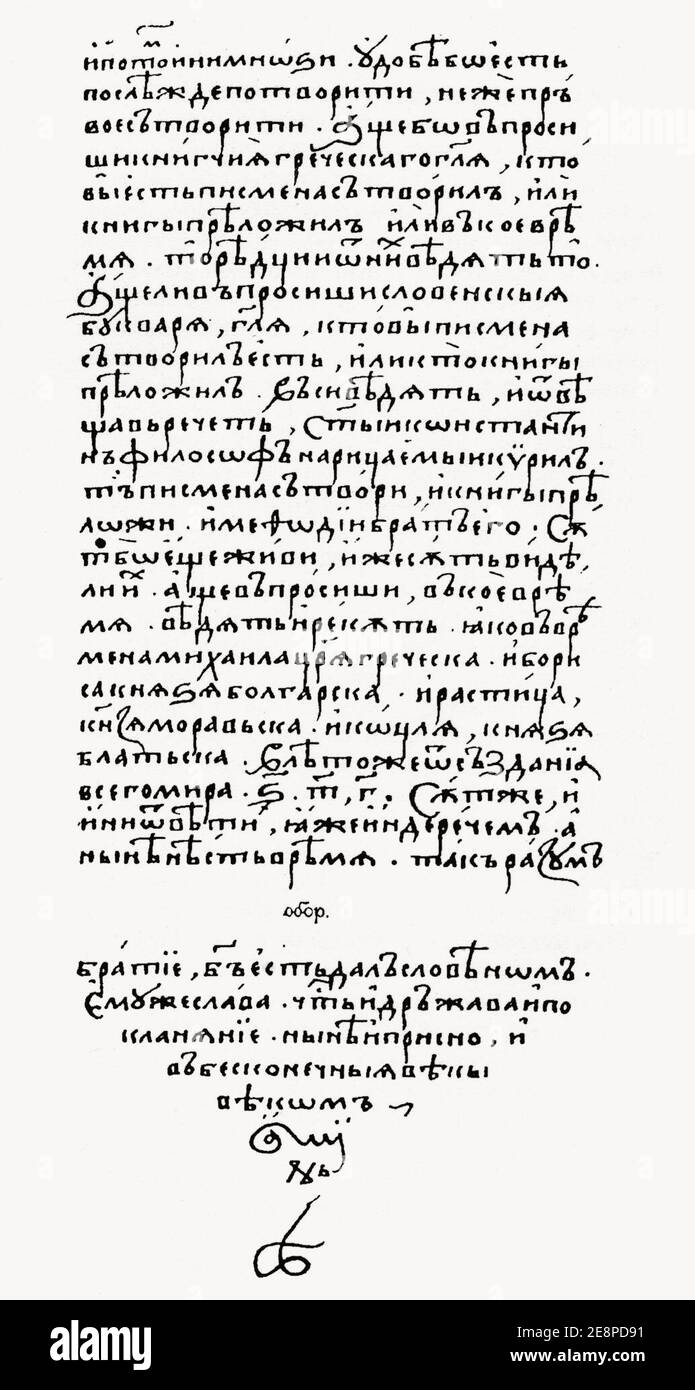 и҆потⷨо́и҆нимиѡ҆ѕи · ᲂу҆добѣ́ебѡе҆сть
послѣждепотвори́ти , не́жепръ
воесътвори́ти · А҆щебѡвъпроси
шикни́гчиѧ҆гре́ческаго гл҃ѧ , кто́
вы̀е҆стьписменасътвори́лъ , и҆лѝ
книгыпрѣложилъ и҆ливъкоеврѣ́
мѧ · то́рѣдциѿни́хвѣдѧтьто̀ .
А҆щеливъпросишисловенскыѧ
букварѧ , гл҃ѧ , кто́выписмена
сътвори́лъе҆сть , и҆ликтокни́гы
прѣложилъ · Всивѣдѧть , и҆ѿвѣ́
щавьречеть , ст҃ыикѡнстанти
нъфилосѡфънарицаемыикѷрилъ ·
тъписменасътвори , и҆кни́гыпрѣ
лѡжи · и҆меѳѡ́дїибратъе҆го · Сѫ́
тбѡе҆щежи́ви , и҆жесѫтьви́дѣ
ли и҆̀х · а҆щевъпросиши , въкоеврѣ
мѧ · вѣдѧтьи҆рекѫть · ꙗ҆ковъврѣ
менамихаилацр҃ѧгрѐческа · и҆бори
сакнѧѕѧболгарска · и҆растица ,
кн҃ѕѧморавьска · и҆коцелѧ , кнѧѕѧ
блатьска · Влѣ́тожеѿсъзданїѧ
всегомира · ѕ҃ · т҃ , г҃ . Сѫ́тже , и҆
и҆ниѿвѣти , ꙗ҆жеи҆ндеречемъ · а҆
нынѣнѣстьврѣ́мѧ · такъразумъ
обор.
братїе , бг҃ъе҆стьдалъсловѣнѡмъ ·
Е҆мужеслава · чтⷭ҇ьи҆дръжаваи҆по
кланѧнїе · нынѣи҆присно , и҆
въбесконечныѧвѣкы
вѣкѡмъ
а҆ми
нь
alamy
Image ID: 2E8PD91
www.alamy.com